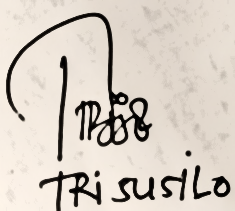 TRi SUSILO